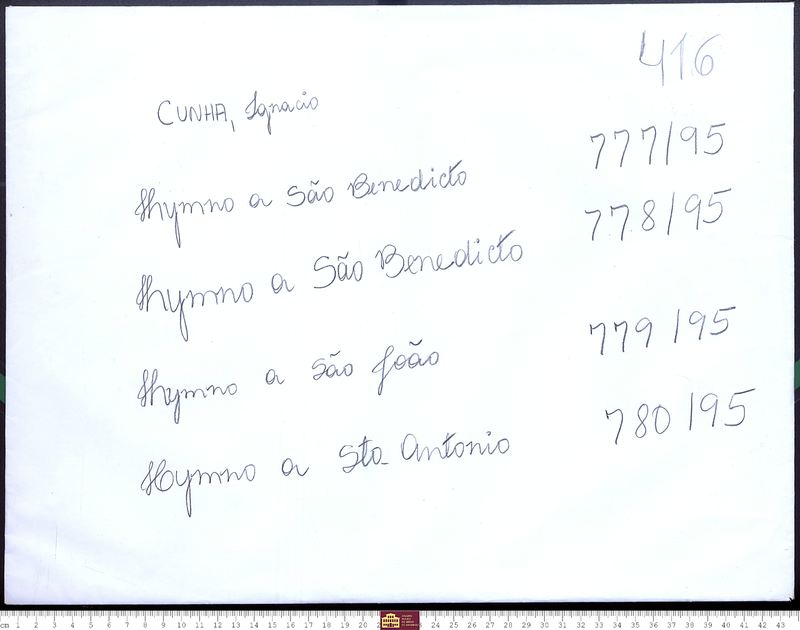 416
CUNHA, Ignacio
Hymno a São Benedicto 777/95
Hymno a São Benedicto 778/95
Hymno a São João 779/95
Hymno a Sto Antonio 780/95
cm 1 2 3 4 5 6 7 8 9 10 11 12 13 14 15 16 17 18 19 20 24 25 26 27 28 29 30 31 32 33 34 35 36 37 38 39 40 41 42 43